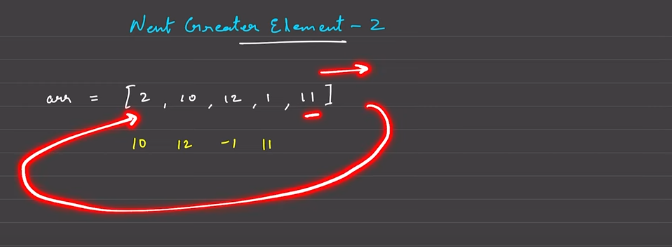 Next Greater Element - 2
arr = [2, 10, 12, 1, 11]
10 12 -1 11